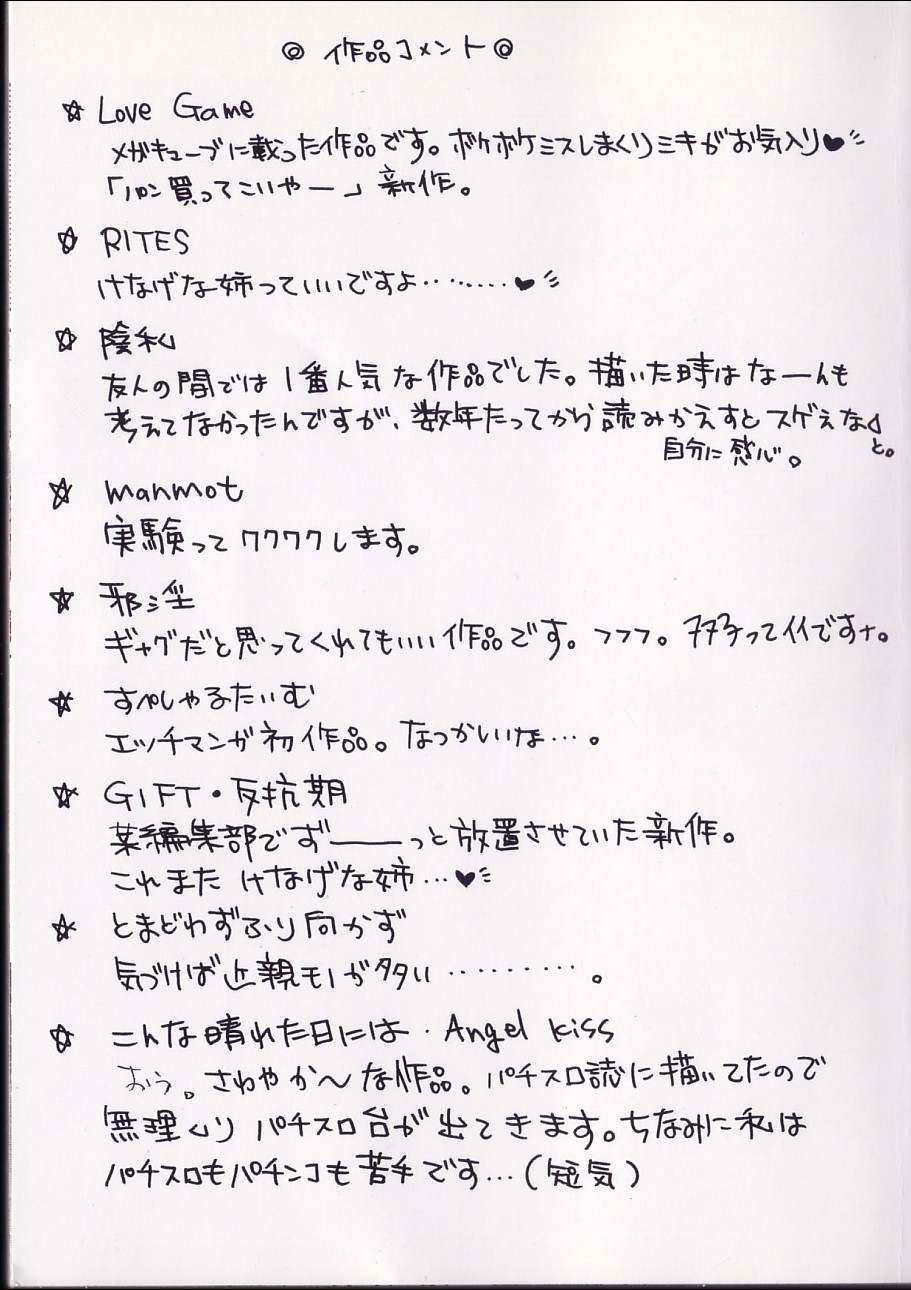 ◎ 作品コメント◎
☆ Love Game
メガキューブに載った作品です。ボケボケミスしまくりミキがお気入り♥
「パン買ってこいやー」新作。
☆ RITES
けなげな姉っていいですよ‥‥‥‥♥
☆ 陰私
友人の間では1番人気な作品でした。描いた時はなーんも
考えてなかったんですが、数年たってから読みかえすとスゲえな
と。
自分に感心。
☆ manmot
実験ってワクワクします。
☆ 邪淫
ギャグだと思ってくれてもいい作品です。フフフ。フタナってイイですナ。
☆ すぺしゃるたいむ
エッチマンガ初作品。なつかいいな…。
☆ GIFT・反抗期
某編集部でずーーーっと放置させていた新作。
これまた けなげな姉…♥
☆ とまどわずふり向かず
気づけば近親モノが多い‥‥‥‥‥。
☆ こんな晴れた日には・Angel kiss
おう。さわやか〜な作品。パチスロ誌に描いてたので
無理くり パチスロ台が出てきます。ちなみに私は
パチスロもパチンコも苦手です…(短気)